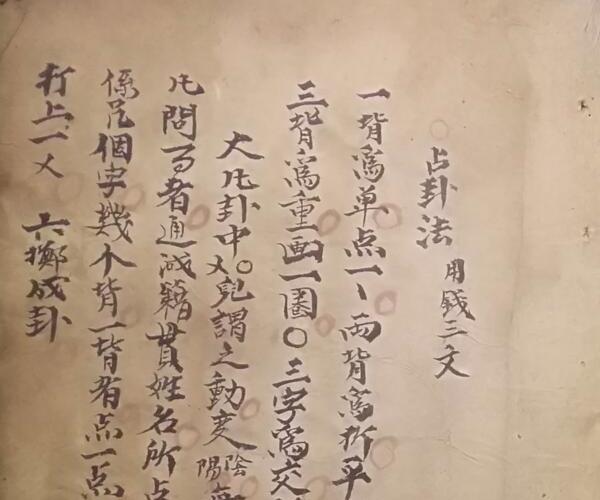 占卦法 用錢三文
一背爲单点一丶两背爲折平
三背爲重画一圈〇三字爲交
大凡卦中〇乂見謂之動变陰陽
凡問者通诚籍貫姓名所占
係是個字幾个背一背者点一点
打上一乂 六擲成卦